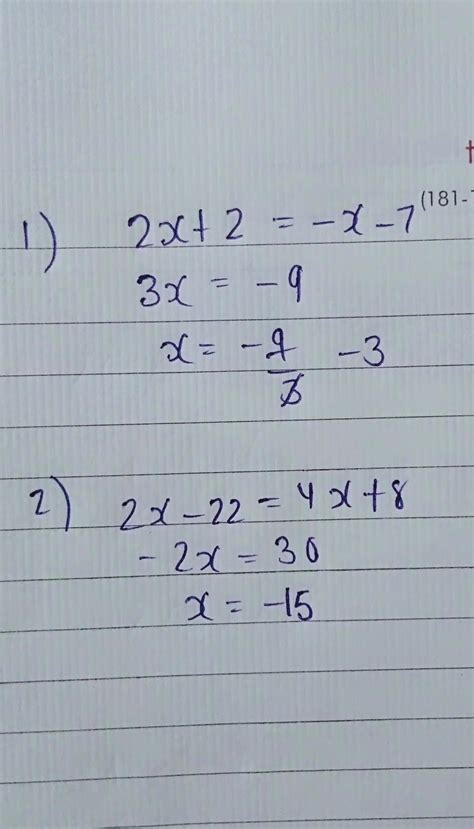 t
(181-1
1) 2x+2 = -x-7
3x = -9
x = -9/3 -3
2) 2x-22 = 4x+8
-2x = 30
x = -15